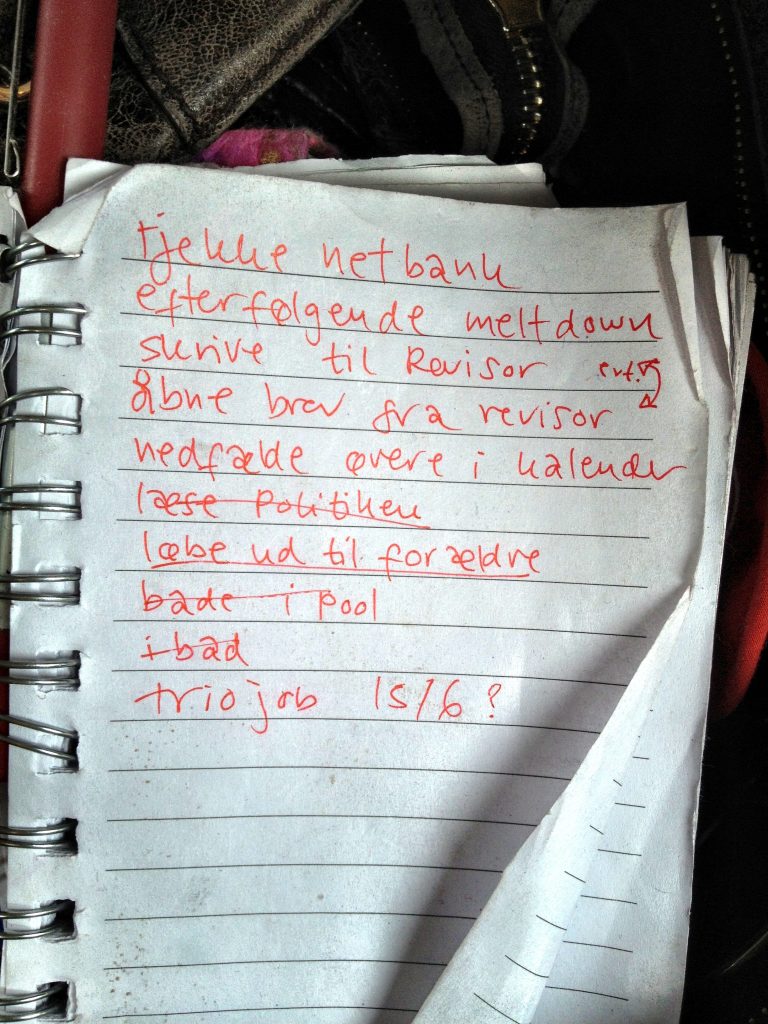 tjekke netbank
efterfølgende meltdown
skrive til Revisor evt.
åbne brev fra revisor
nedfælde øvere i kalender
læse Politiken
løbe ud til forældre
bade i pool
i bad
triojob 15/6?